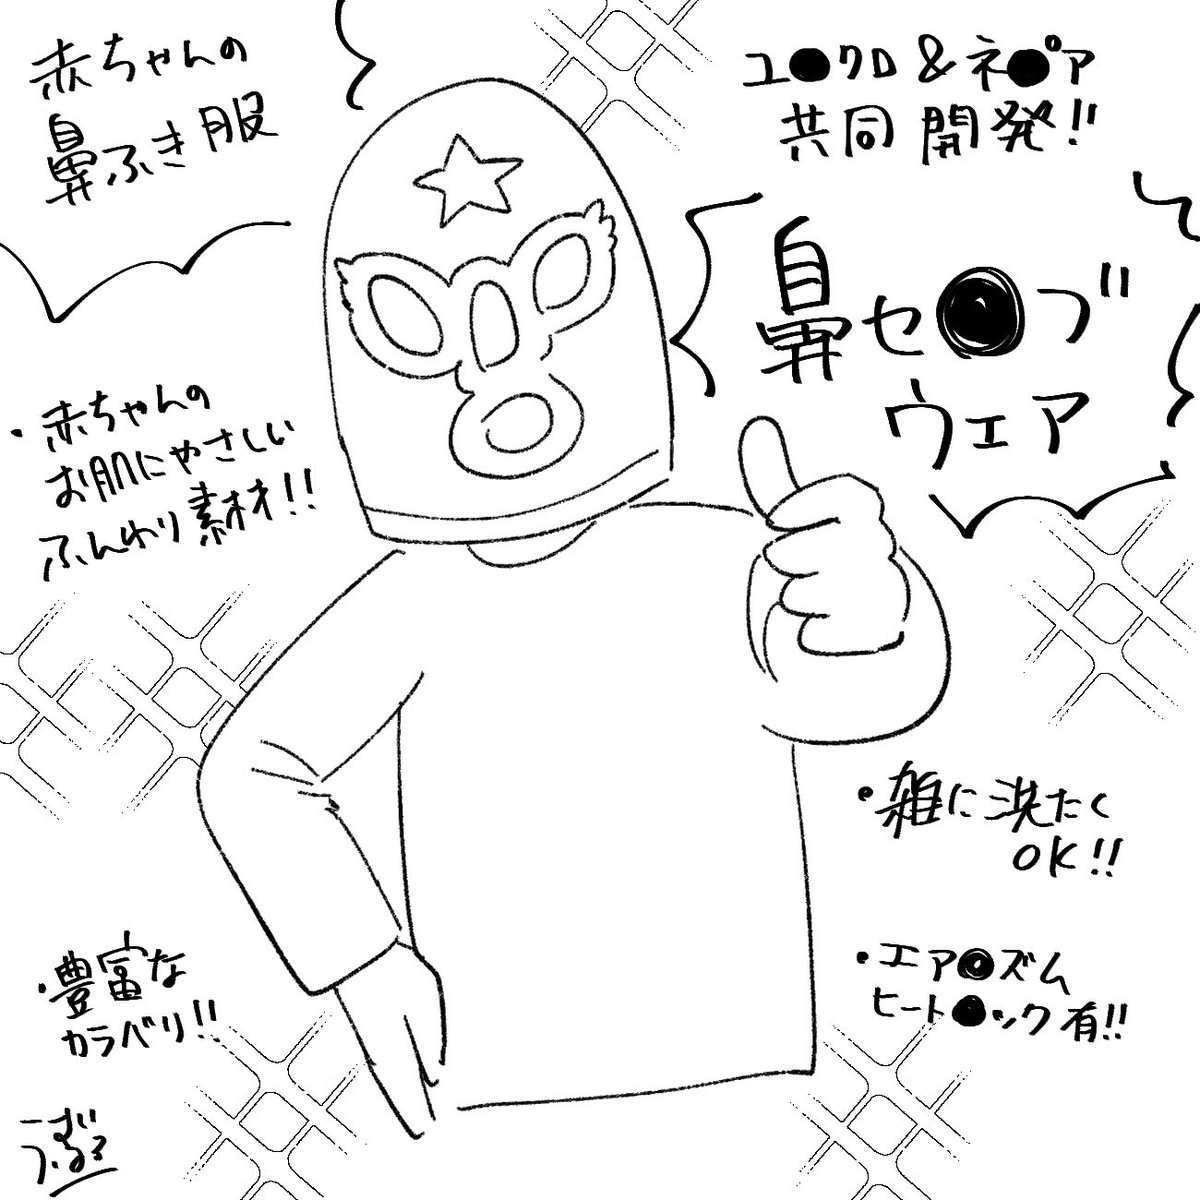 赤ちゃんの
鼻ふき服
ユ●クロ&ネ●ピア
共同開発!!
鼻セ●ブ
ウェア
・赤ちゃんの
お肌にやさしい
ふんわり素材!!
・雑に洗たく
OK!!
・豊富な
カラバリ!!
・エア●ズム
ヒート●ック有!!